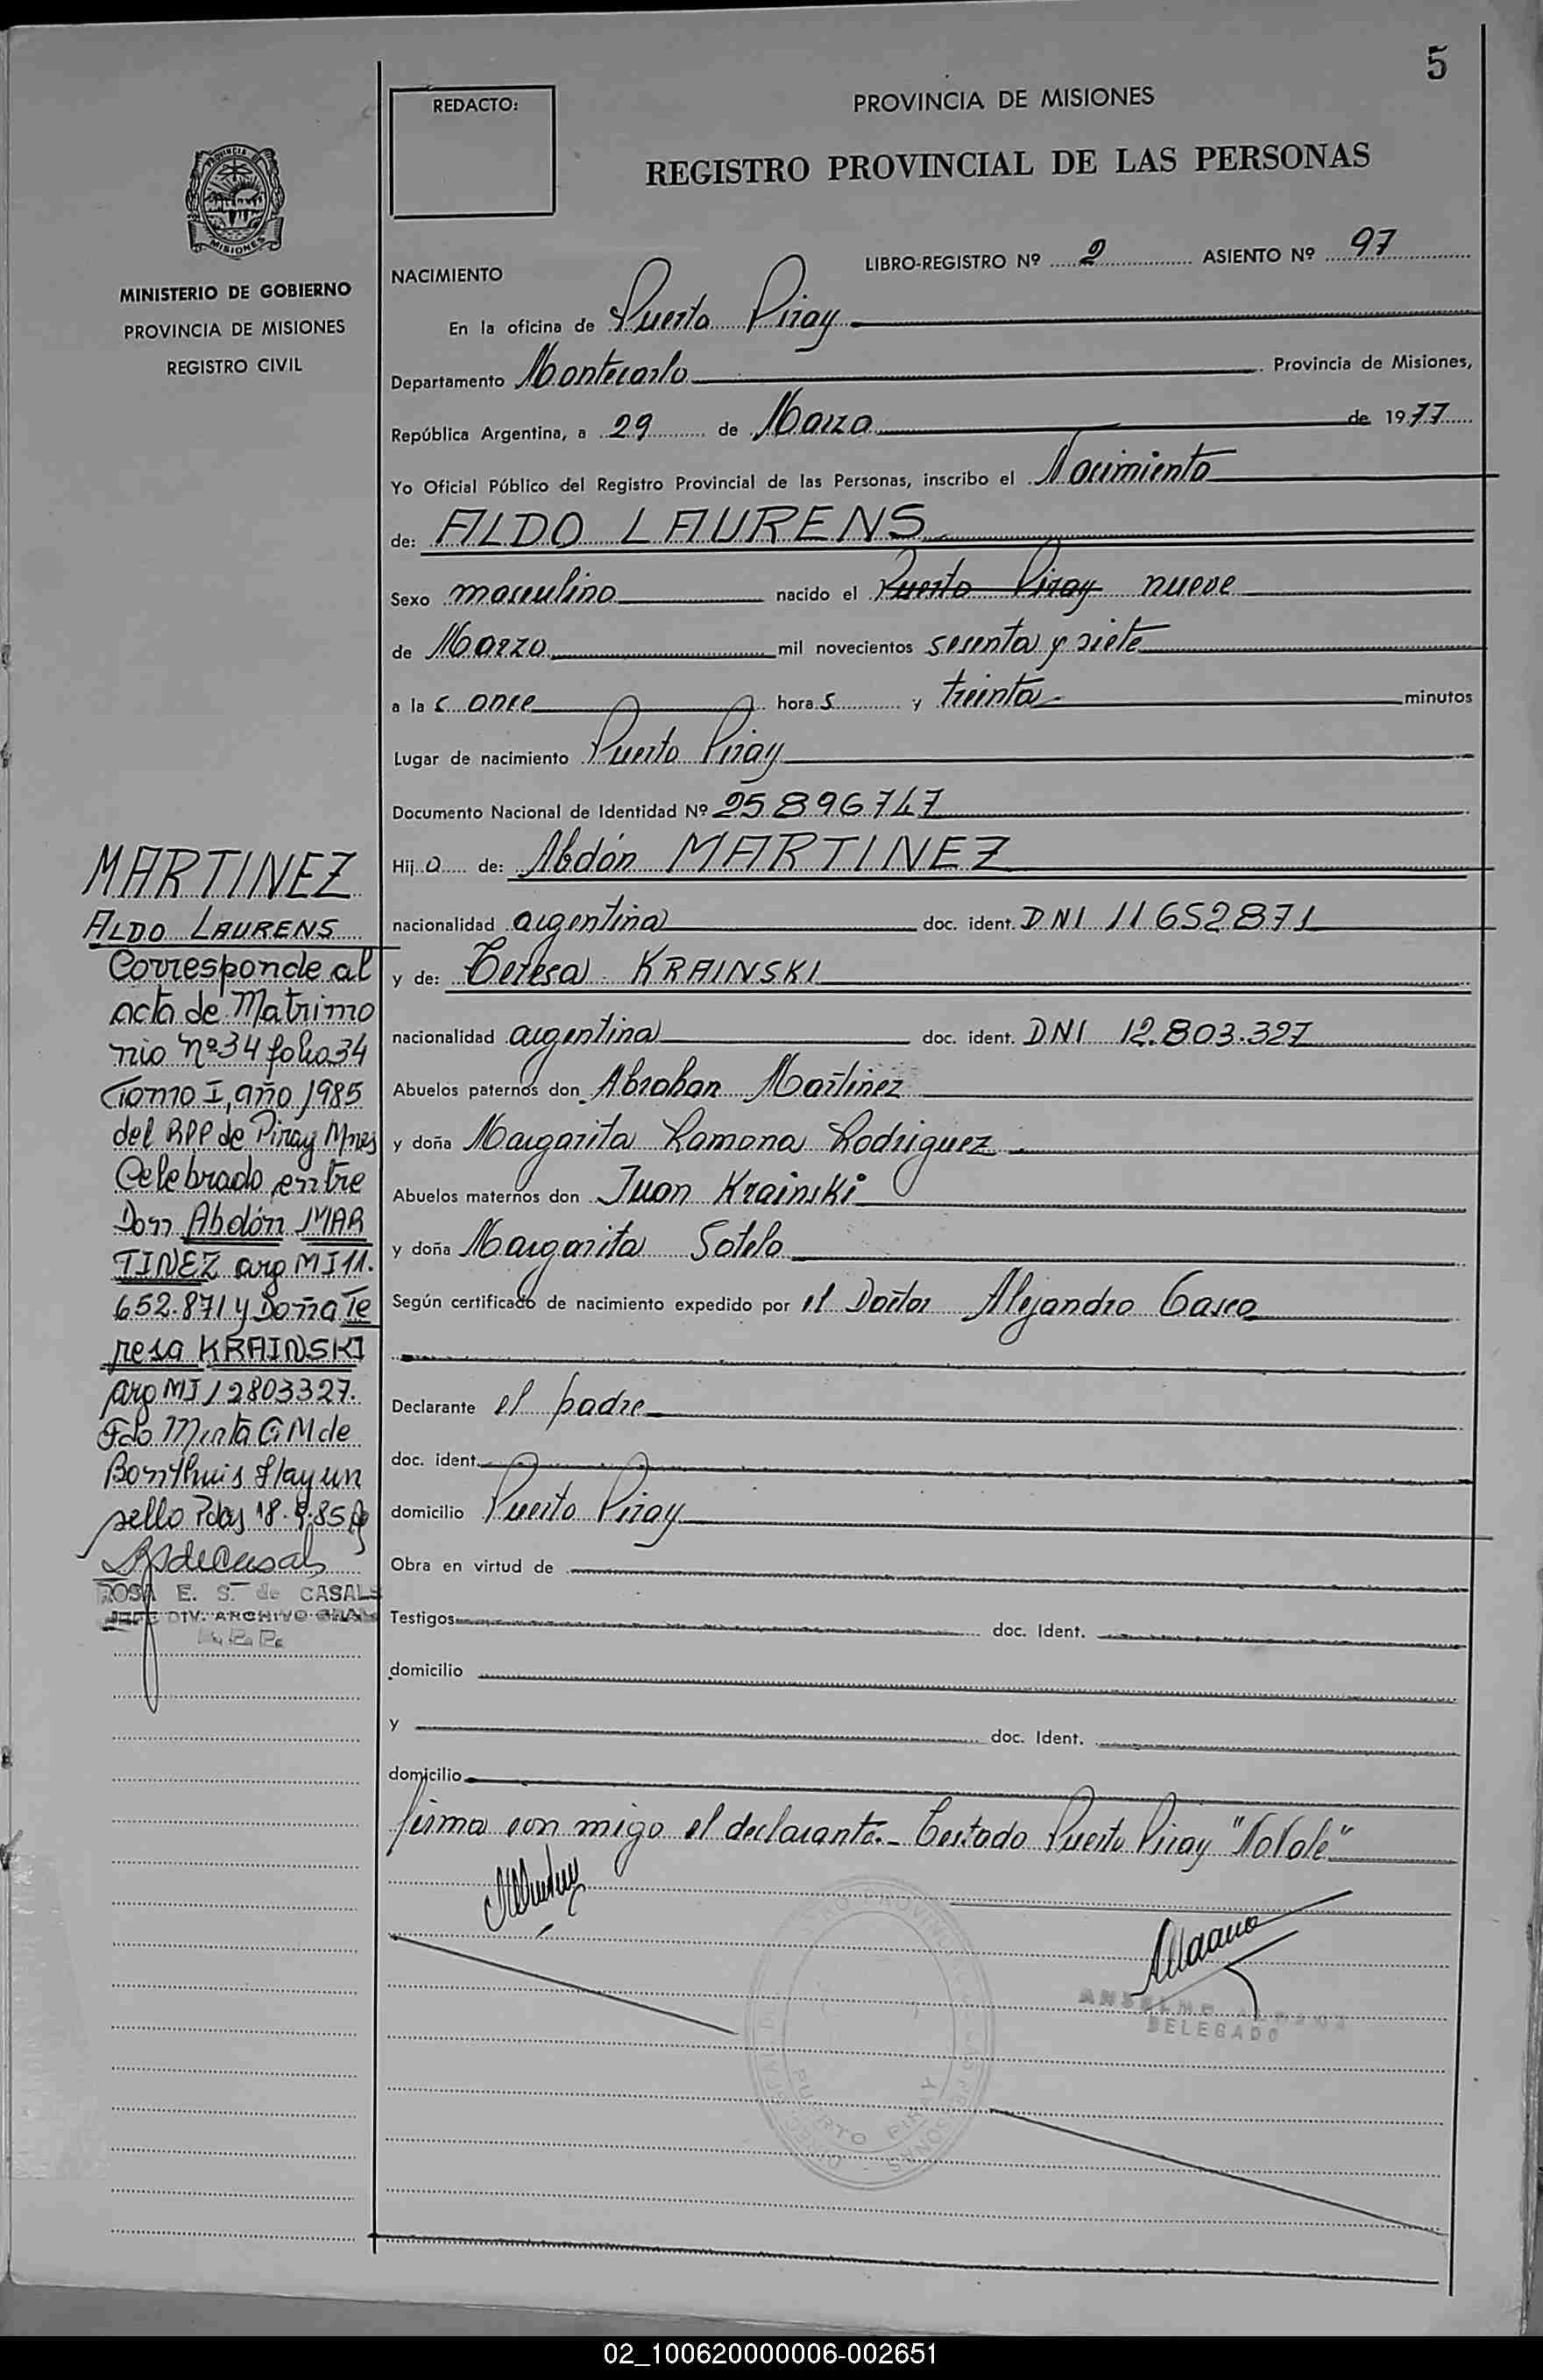 5
REDACTO:
PROVINCIA DE MISIONES
REGISTRO PROVINCIAL DE LAS PERSONAS
PROVINCIA DE
MISIONES
MINISTERIO DE GOBIERNO
PROVINCIA DE MISIONES
REGISTRO CIVIL
NACIMIENTO
LIBRO-REGISTRO Nº 2 ASIENTO Nº 97
En la oficina de Puerto Piray
Departamento Montecarlo Provincia de Misiones,
República Argentina, a 29 de Marzo de 1977
Yo Oficial Público del Registro Provincial de las Personas, inscribo el Nacimiento
de: ALDO LAURENS
Sexo masculino nacido el Puerto Piray nueve
de Marzo mil novecientos sesenta y siete
a la s once hora s y treinta minutos
Lugar de nacimiento Puerto Piray
Documento Nacional de Identidad Nº 25896747
Hij o de: Abdón MARTINEZ
nacionalidad argentina doc. ident. DNI 11652871
y de: Teresa KRAINSKI
nacionalidad argentina doc. ident. DNI 12.803.327
Abuelos paternos don Abrahan Martinez
y doña Margarita Ramona Rodriguez
Abuelos maternos don Juan Krainski
y doña Margarita Sotelo
Según certificado de nacimiento expedido por el Doctor Alejandro Gasco
Declarante el padre
doc. ident.
domicilio Puerto Piray
Obra en virtud de
Testigos doc. Ident.
domicilio
y doc. Ident.
domicilio
firma con migo el declarante.- Testado Puerto Piray "No Vale"
ANSELMO
DELEGADO
PUERTO PIRAY
MARTINEZ
ALDO LAURENS
Corresponde al
acta de Matrimo
nio nº 34 folio 34
Tomo I, año 1985
del RPP de Piray Mnes
Celebrado entre
Don Abdón MAR
TINEZ arg MI 11.
652.871 y Doña Te
resa KRAINSKI
arg MI 12803327.
Fdo Mirta G M de
Bonthuis Hay un
sello Pdas 18.9.85
ROSA E. S. de CASALS
JEFE DIV. ARCHIVO GRAL
02_100620000006-002651